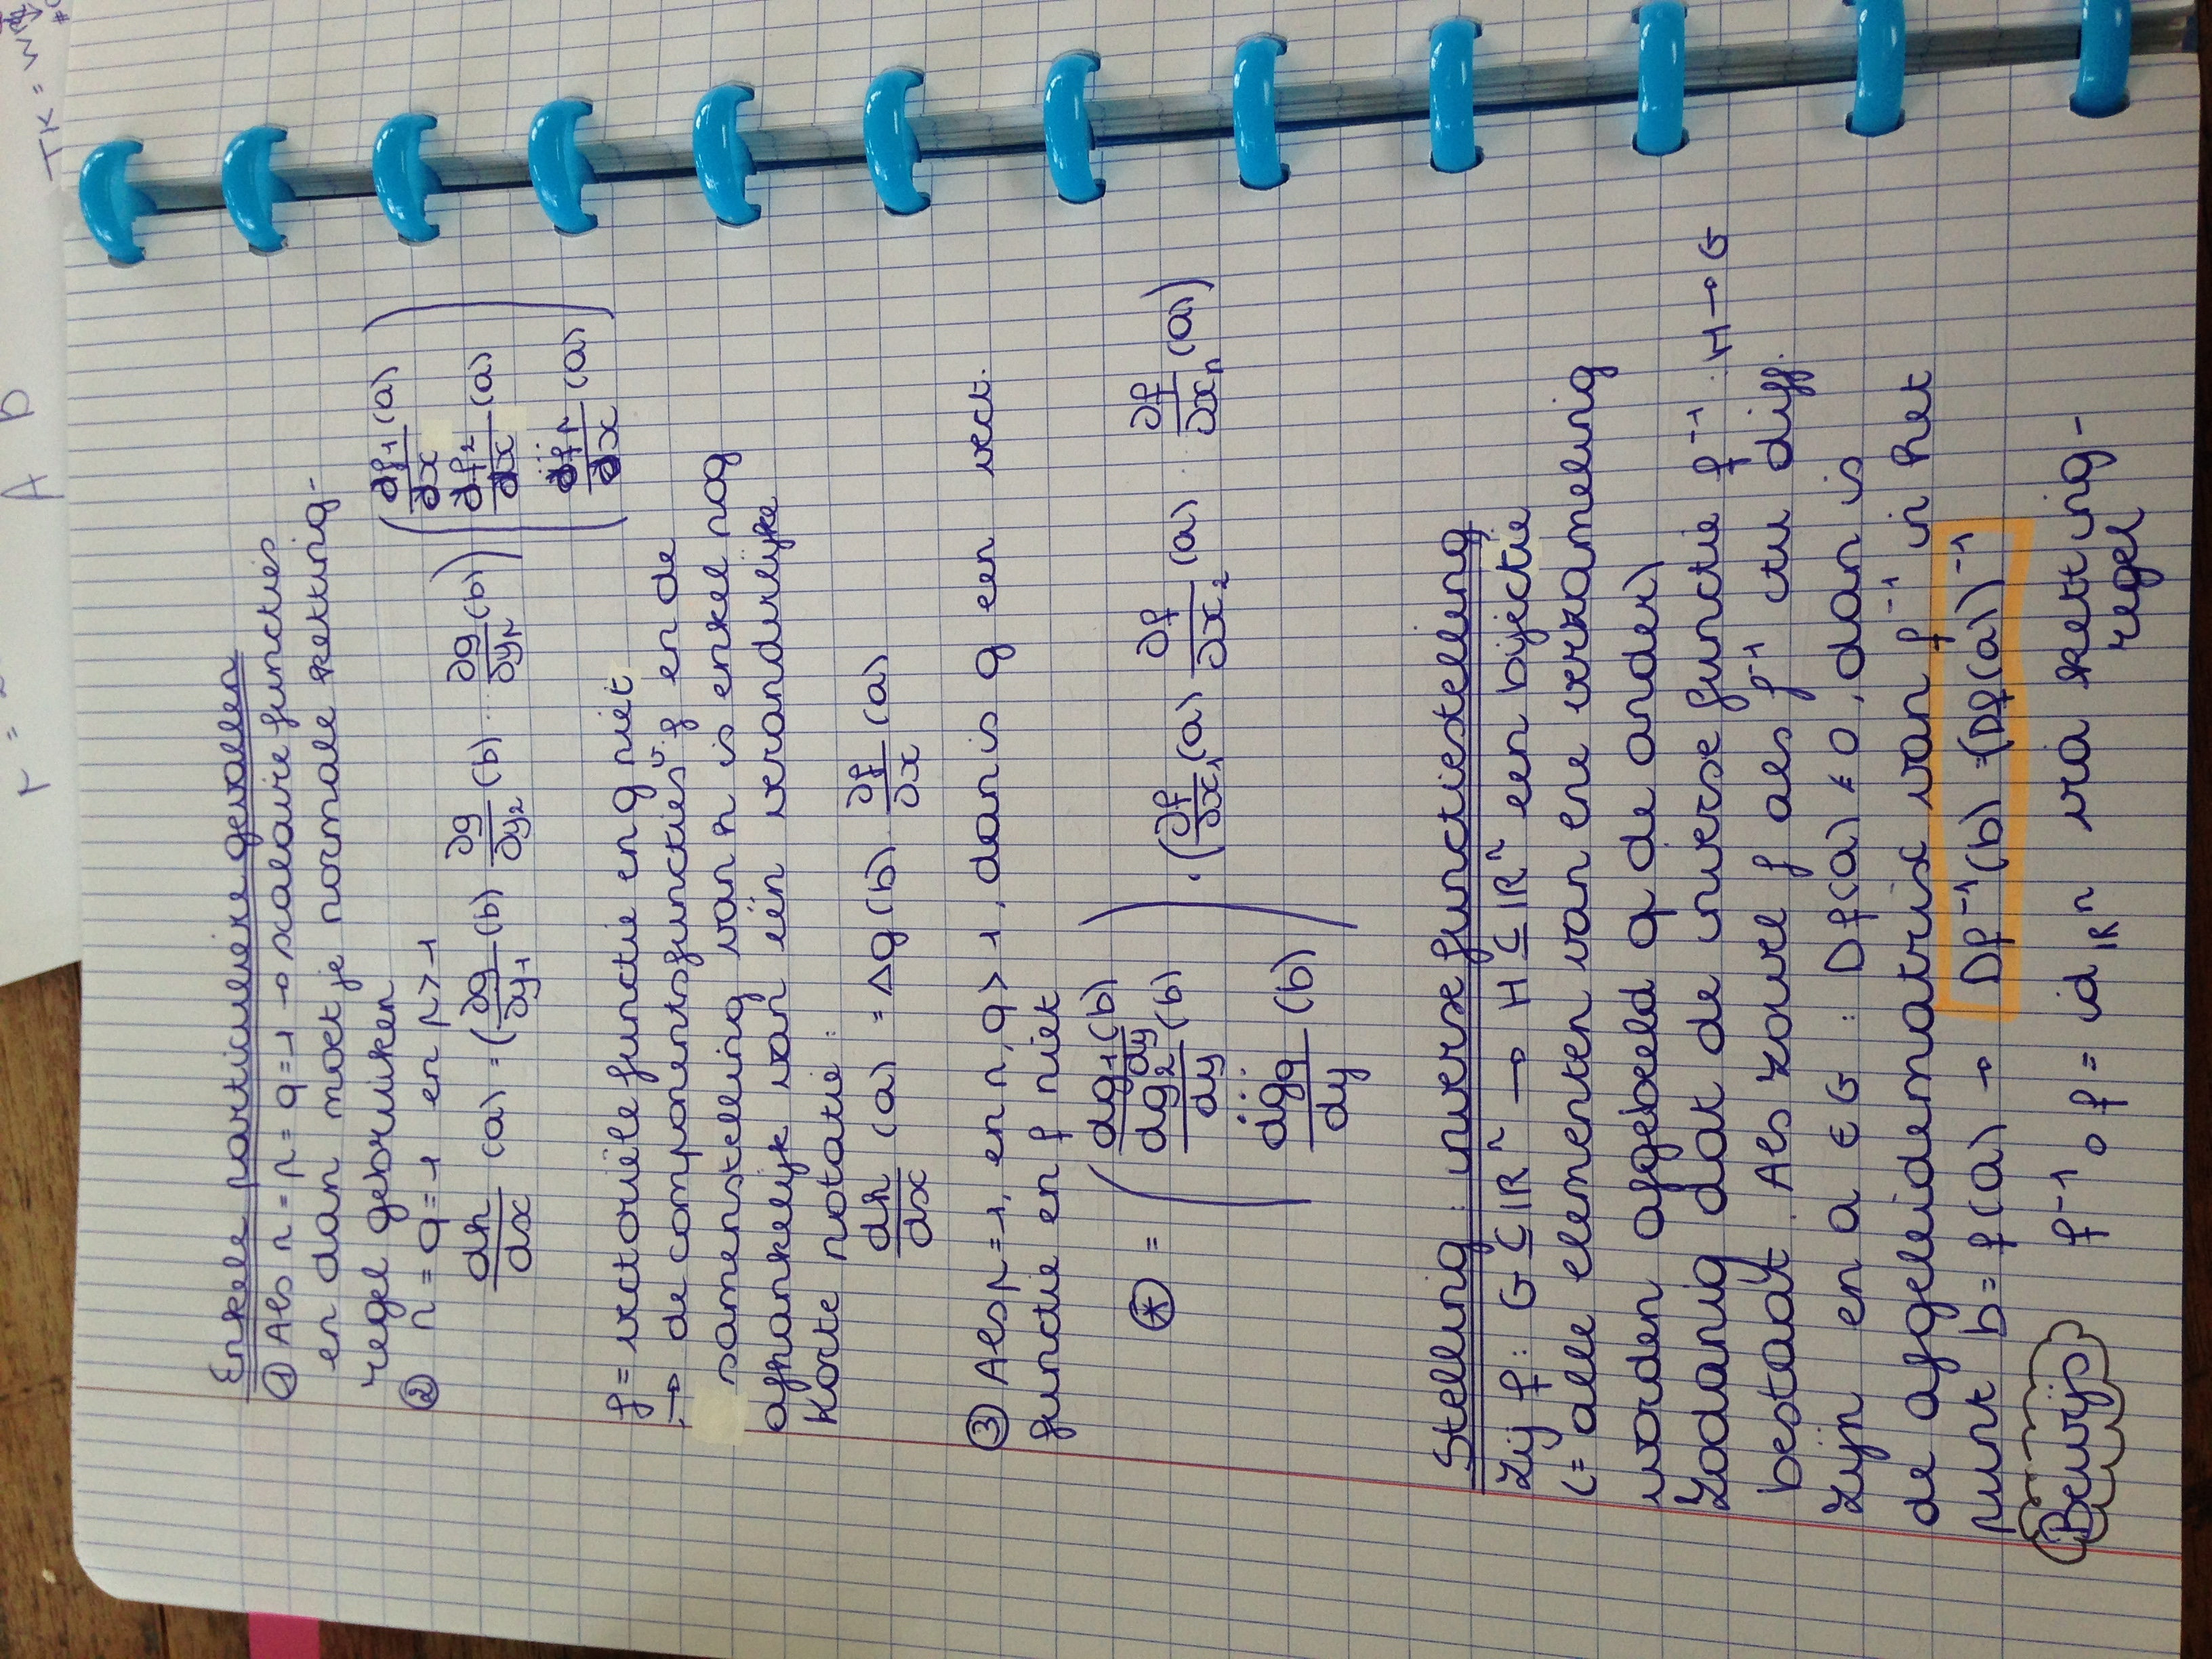 Enkele particuliere gevallen
① Als n = p = q = 1 → scalaire functies
en dan moet je normale ketting-
regel gebruiken
② n = q = 1 en p > 1
dh/dx (a) = (∂g/∂y₁ (b) ∂g/∂y₂ (b) ... ∂g/∂yₚ (b)) (df₁/dx (a) df₂/dx (a) ... dfₚ/dx (a))
f = vectoriële functie en g niet
→ de componentsfuncties v. f en de
samenstelling van h is enkel nog
afhankelijk van één veranderlijke
Korte notatie:
dh/dx (a) = ∆g(b) · ∂f/∂x (a)
③ Als p = 1, en n, q > 1, dan is g een vect.
functie en f niet
⊛ = (dg₁/dy (b) dg₂/dy (b) ... dgq/dy (b)) · (∂f/∂x₁ (a) ∂f/∂x₂ (a) ... ∂f/∂xₙ (a))
Stelling: inverse functiestelling
Zij f: G ⊆ ℝⁿ → H ⊆ ℝⁿ een bijectie
(= alle elementen van ene verzameling
worden afgebeeld op de ander)
Zodanig dat de inverse functie f⁻¹: H → G
bestaat. Als zowel f als f⁻¹ ctu diff.
zijn en a ∈ G : Df(a) ≠ 0, dan is
de afgeleidematrix van f⁻¹ in het
punt b = f(a) → Df⁻¹(b) = (Df(a))⁻¹
Bewijs f⁻¹ ∘ f = id ℝⁿ via ketting-
regel
r =
A D
TK =